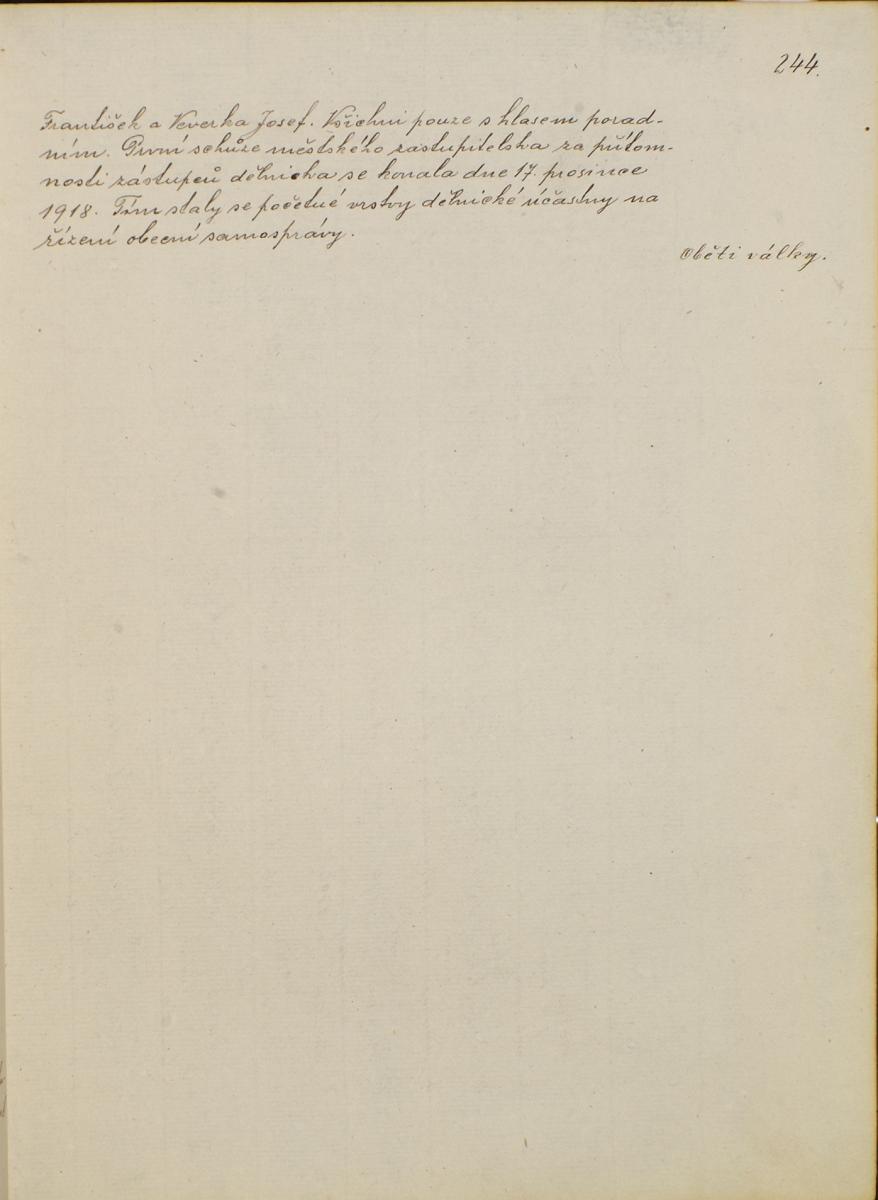 244.
František a Veverka Josef. Všichni pouze s hlasem porad-
ním. První schůze městského zastupitelstva za přítom-
nosti zástupců dělnictva se konala dne 17. prosince
1918. Tím staly se početné vrstvy dělnické účastny na
řízení obecní samosprávy.
Oběti války.